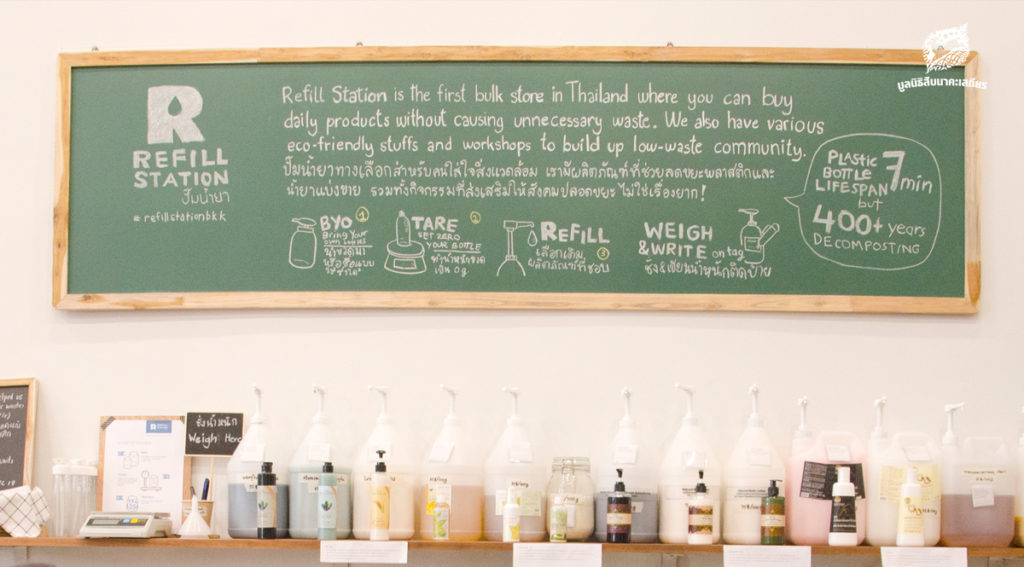 มูลนิธิสืบนาคะเสถียร
R
REFILL
STATION
ปั๊มน้ำยา
# refillstationbkk
Refill Station is the first bulk store in Thailand where you can buy
daily products without causing unnecessary waste. We also have various
eco-friendly stuffs and workshops to build up low-waste community.
ปั๊มน้ำยาทางเลือกสำหรับคนใส่ใจสิ่งแวดล้อม เรามีผลิตภัณฑ์ที่ช่วยลดขยะพลาสติกและ
น้ำยาแบ่งขาย รวมทั้งกิจกรรมที่ส่งเสริมให้สังคมปลอดขยะ ไม่ใช่เรื่องยาก!
BYO 1
Bring your
own bottles
TARE 2
SET ZERO
YOUR BOTTLE
ทำน้ำหนักขวด
เป็น 0g.
REFILL
เลือกเติม 3
ผลิตภัณฑ์ที่ชอบ
WEIGH
& WRITE on tag
ชั่ง&เขียนน้ำหนักติดป้าย
PLASTIC
BOTTLE
LIFESPAN
7 min
but
400+ years
DECOMPOSTING
ชั่งน้ำหนัก
Weigh Here
REFILL